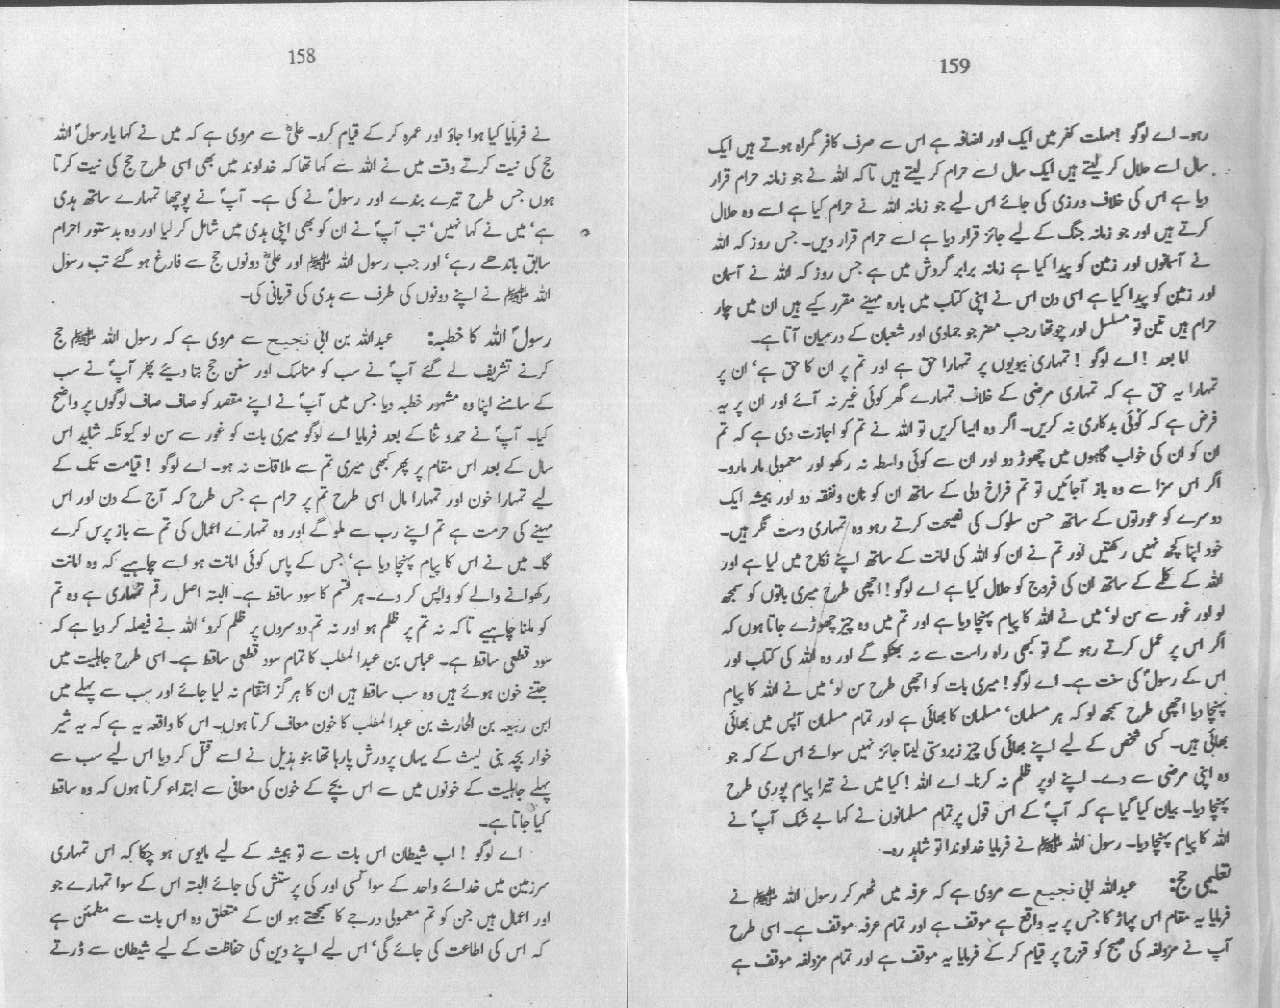 158
نے فرمایا کیا ہوا جاؤ اور عمرہ کر کے قیام کرو۔ علیؓ سے مروی ہے کہ میں نے کہا یا رسولؐ اللہ
حج کی نیت کرتے وقت میں نے اللہ سے کہا تھا کہ خداوند میں بھی اسی طرح حج کی نیت کرتا
ہوں جس طرح تیرے بندے اور رسولؐ نے کی ہے۔ آپؐ نے پوچھا تمہارے ساتھ ہدی
ہے‘ میں نے کہا نہیں‘ تب آپؐ نے ان کو بھی اپنی ہدی میں شامل کر لیا اور وہ بدستور احرام
سابق باندھے رہے‘ اور جب رسول اللہ ﷺ اور علیؓ دونوں حج سے فارغ ہو گئے تب رسول
اللہ ﷺ نے اپنے دونوں کی طرف سے ہدی کی قربانی کی۔
رسولؐ اللہ کا خطبہ: عبداللہ بن ابی نجیح سے مروی ہے کہ رسول اللہ ﷺ حج
کرنے تشریف لے گئے آپؐ نے سب کو مناسک اور سنن حج بتا دیئے پھر آپؐ نے سب
کے سامنے اپنا وہ مشہور خطبہ دیا جس میں آپؐ نے اپنے مقصد کو صاف صاف لوگوں پر واضح
کیا۔ آپؐ نے حمد و ثنا کے بعد فرمایا اے لوگو میری بات کو غور سے سن لو کیونکہ شاید اس
سال کے بعد اس مقام پر پھر کبھی میری تم سے ملاقات نہ ہو۔ اے لوگو ! قیامت تک کے
لیے تمہارا خون اور تمہارا مال اسی طرح تم پر حرام ہے جس طرح کہ آج کے دن اور اس
مہینے کی حرمت ہے تم اپنے رب سے ملو گے اور وہ تمہارے اعمال کی تم سے باز پرس کرے
گا۔ میں نے اس کا پیام پہنچا دیا ہے‘ جس کے پاس کوئی امانت ہو اسے چاہیے کہ وہ امانت
رکھوانے والے کو واپس کر دے۔ ہر قسم کا سود ساقط ہے۔ البتہ اصل رقم تمہاری ہے وہ تم
کو ملنا چاہیے تا کہ نہ تم پر ظلم ہو اور نہ تم دوسروں پر ظلم کرو‘ اللہ نے فیصلہ کر دیا ہے کہ
سود قطعی ساقط ہے۔ عباس بن عبدالمطلب کا تمام سود قطعی ساقط ہے۔ اسی طرح جاہلیت میں
جتنے خون ہوئے ہیں وہ سب ساقط ہیں ان کا ہر گز انتقام نہ لیا جائے اور سب سے پہلے میں
ابن ربیعہ بن الحارث بن عبدالمطلب کا خون معاف کرتا ہوں۔ اس کا واقعہ یہ ہے کہ یہ شیر
خوار بچہ بنی لیث کے یہاں پرورش پا رہا تھا بنو ہذیل نے اسے قتل کر دیا اس لیے سب سے
پہلے جاہلیت کے خونوں میں سے اس بچے کے خون کی معافی سے ابتداء کرتا ہوں کہ وہ ساقط
کیا جاتا ہے۔
اے لوگو ! اب شیطان اس بات سے تو ہمیشہ کے لیے مایوس ہو چکا کہ اس تمہاری
سرزمین میں خدائے واحد کے سوا کسی اور کی پرستش کی جائے البتہ اس کے سوا تمہارے جو
اور اعمال ہیں جن کو تم معمولی درجے کا سمجھتے ہو ان کے متعلق وہ اس بات سے مطمئن ہے
کہ اس کی اطاعت کی جائے گی‘ اس لیے اپنے دین کی حفاظت کے لیے شیطان سے ڈرتے
159
رہو۔ اے لوگو ! مہلت کفر میں ایک اور اضافہ ہے اس سے صرف کافر گمراہ ہوتے ہیں ایک
سال اسے حلال کر لیتے ہیں ایک سال اسے حرام کر لیتے ہیں تا کہ اللہ نے جو زمانہ حرام قرار
دیا ہے اس کی خلاف ورزی کی جائے اس لیے جو زمانہ اللہ نے حرام کیا ہے اسے وہ حلال
کرتے ہیں اور جو زمانہ جنگ کے لیے جائز قرار دیا ہے اسے حرام قرار دیں۔ جس روز کہ اللہ
نے آسمانوں اور زمین کو پیدا کیا ہے زمانہ برابر گردش میں ہے جس روز کہ اللہ نے آسمان
اور زمین کو پیدا کیا ہے اسی دن اس نے اپنی کتاب میں بارہ مہینے مقرر کیے ہیں ان میں چار
حرام ہیں تین تو مسلسل اور چوتھا رجب مضر جو جمادی اور شعبان کے درمیان آتا ہے۔
اما بعد ! اے لوگو ! تمہاری بیویوں پر تمہارا حق ہے اور تم پر ان کا حق ہے‘ ان پر
تمہارا یہ حق ہے کہ تمہاری مرضی کے خلاف تمہارے گھر کوئی غیر نہ آئے اور ان پر یہ
فرض ہے کہ کوئی بدکاری نہ کریں۔ اگر وہ ایسا کریں تو اللہ نے تم کو اجازت دی ہے کہ تم
ان کو ان کی خواب گاہوں میں چھوڑ دو اور ان سے کوئی واسطہ نہ رکھو اور معمولی مار مارو۔
اگر اس سزا سے وہ باز آجائیں تو تم فراخ دلی کے ساتھ ان کو نان و نفقہ دو اور ہمیشہ ایک
دوسرے کو عورتوں کے ساتھ حسن سلوک کی نصیحت کرتے رہو وہ تمہاری دست نگر ہیں۔
خود اپنا کچھ نہیں رکھتیں اور تم نے ان کو اللہ کی امانت کے ساتھ اپنے نکاح میں لیا ہے اور
اللہ کے کلمے کے ساتھ ان کی فروج کو حلال کیا ہے اے لوگو! اچھی طرح میری باتوں کو سمجھ
لو اور غور سے سن لو‘ میں نے اللہ کا پیام پہنچا دیا ہے اور تم میں وہ چیز چھوڑے جاتا ہوں کہ
اگر اس پر عمل کرتے رہو گے تو کبھی راہ راست سے نہ بھٹکو گے اور وہ اللہ کی کتاب اور
اس کے رسولؐ کی سنت ہے۔ اے لوگو! میری بات کو اچھی طرح سن لو‘ میں نے اللہ کا پیام
پہنچا دیا اچھی طرح سمجھ لو کہ ہر مسلمان‘ مسلمان کا بھائی ہے اور تمام مسلمان آپس میں بھائی
بھائی ہیں۔ کسی شخص کے لیے اپنے بھائی کی چیز زبردستی لینا جائز نہیں سوائے اس کے کہ جو
وہ اپنی مرضی سے دے۔ اپنے اوپر ظلم نہ کرنا۔ اے اللہ ! کیا میں نے تیرا پیام پوری طرح
پہنچا دیا۔ بیان کیا گیا ہے کہ آپؐ کے اس قول پر تمام مسلمانوں نے کہا بے شک آپؐ نے
اللہ کا پیام پہنچا دیا۔ رسول اللہ ﷺ نے فرمایا خداوندا تو شاہد رہ۔
تعلیمی حج: عبداللہ ابی نجیع سے مروی ہے کہ عرفہ میں ٹھہر کر رسول اللہ ﷺ نے
فرمایا یہ مقام اس پہاڑ کا جس پر یہ واقع ہے موقف ہے اور تمام عرفہ موقف ہے۔ اسی طرح
آپ نے مزدلفہ کی صبح کو قزح پر قیام کر کے فرمایا یہ موقف ہے اور تمام مزدلفہ موقف ہے